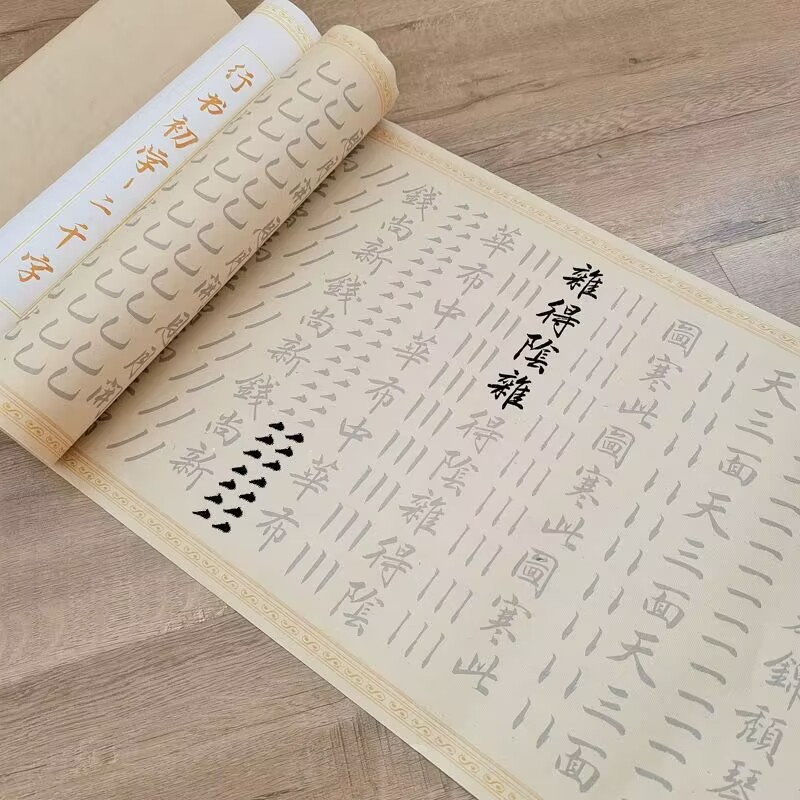 行书初学丶二千字
天三面天三面天三面
圖寒此圖寒此圖寒此
雜得陰雜得陰雜得陰
華布中華布中華布
錢尚新錢尚新錢尚新